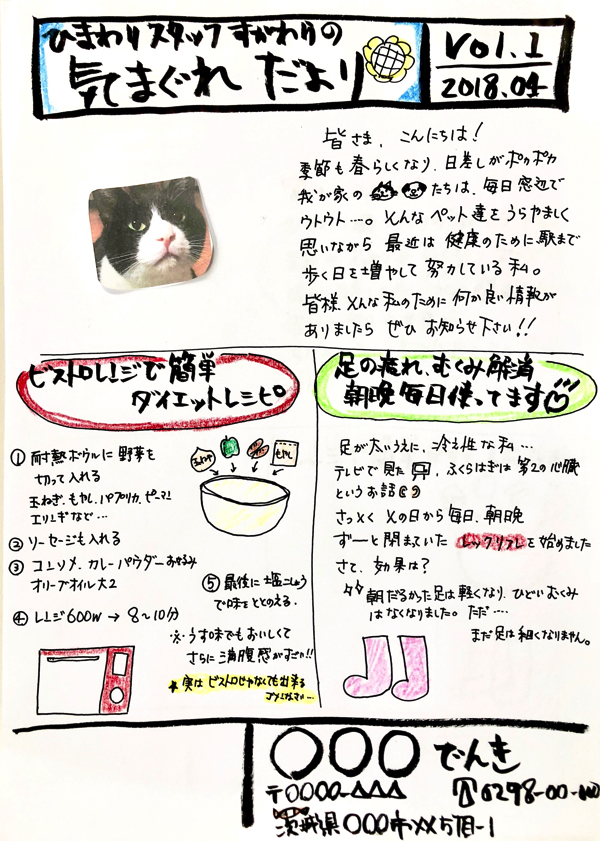 ひまわりスタッフ すがわりの
気まぐれ だより
Vol.1
2018.04
皆さま、こんにちは！
季節も春らしくなり、日差しがポカポカ
我が家の たちは、毎日窓辺で
ウトウト‥‥。そんなペット達をうらやましく
思いながら 最近は 健康のために駅まで
歩く日を増やして 努力している 私。
皆様 そんな私のために 何か良い情報が
ありましたら ぜひ お知らせ下さい!!
ビストロレンジで簡単
ダイエットレシピ
① 耐熱ボウルに 野菜を
切って入れる
玉ねぎ、もやし、パプリカ、ピーマン
エリンギなど…
玉ねぎ
もやし
② ソーセージも入れる
③ コンソメ、カレーパウダー
オリーブオイル大2
④ レンジ600w → 8〜10分
⑤ 最後に 塩こしょう
で味をととのえる.
※うす味でもおいしくて
さらに 満腹感がすごい!!
★ 実は ビストロじゃなくても出来る
ゴメンなさい…
足の疲れ、むくみ解消
朝晩毎日使ってます
足が太いうえに、冷え性な私…
テレビで見た 、ふくらはぎは 第2の心臓
というお話
さっそく その日から毎日、朝晩
ずーと閉まっていた レッグリフレを始めました
さて、効果は？
朝だるかった足は軽くなり、ひどいむくみ
はなくなりました。ただ‥‥
まだ足は細くなりません。
〇〇〇でんき
〒〇〇〇〇-△△△
☎0298-00-
茨城県〇〇〇市××5丁目-1